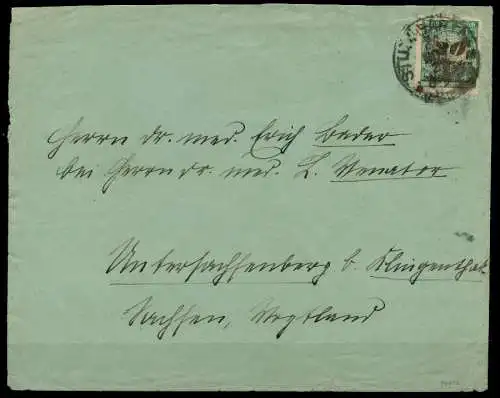 Herrn Dr. med. Erich Bader
bei Herrn Dr. med. L. Venator
Untersachsenberg b. Klingenthal
Sachsen, Vogtland